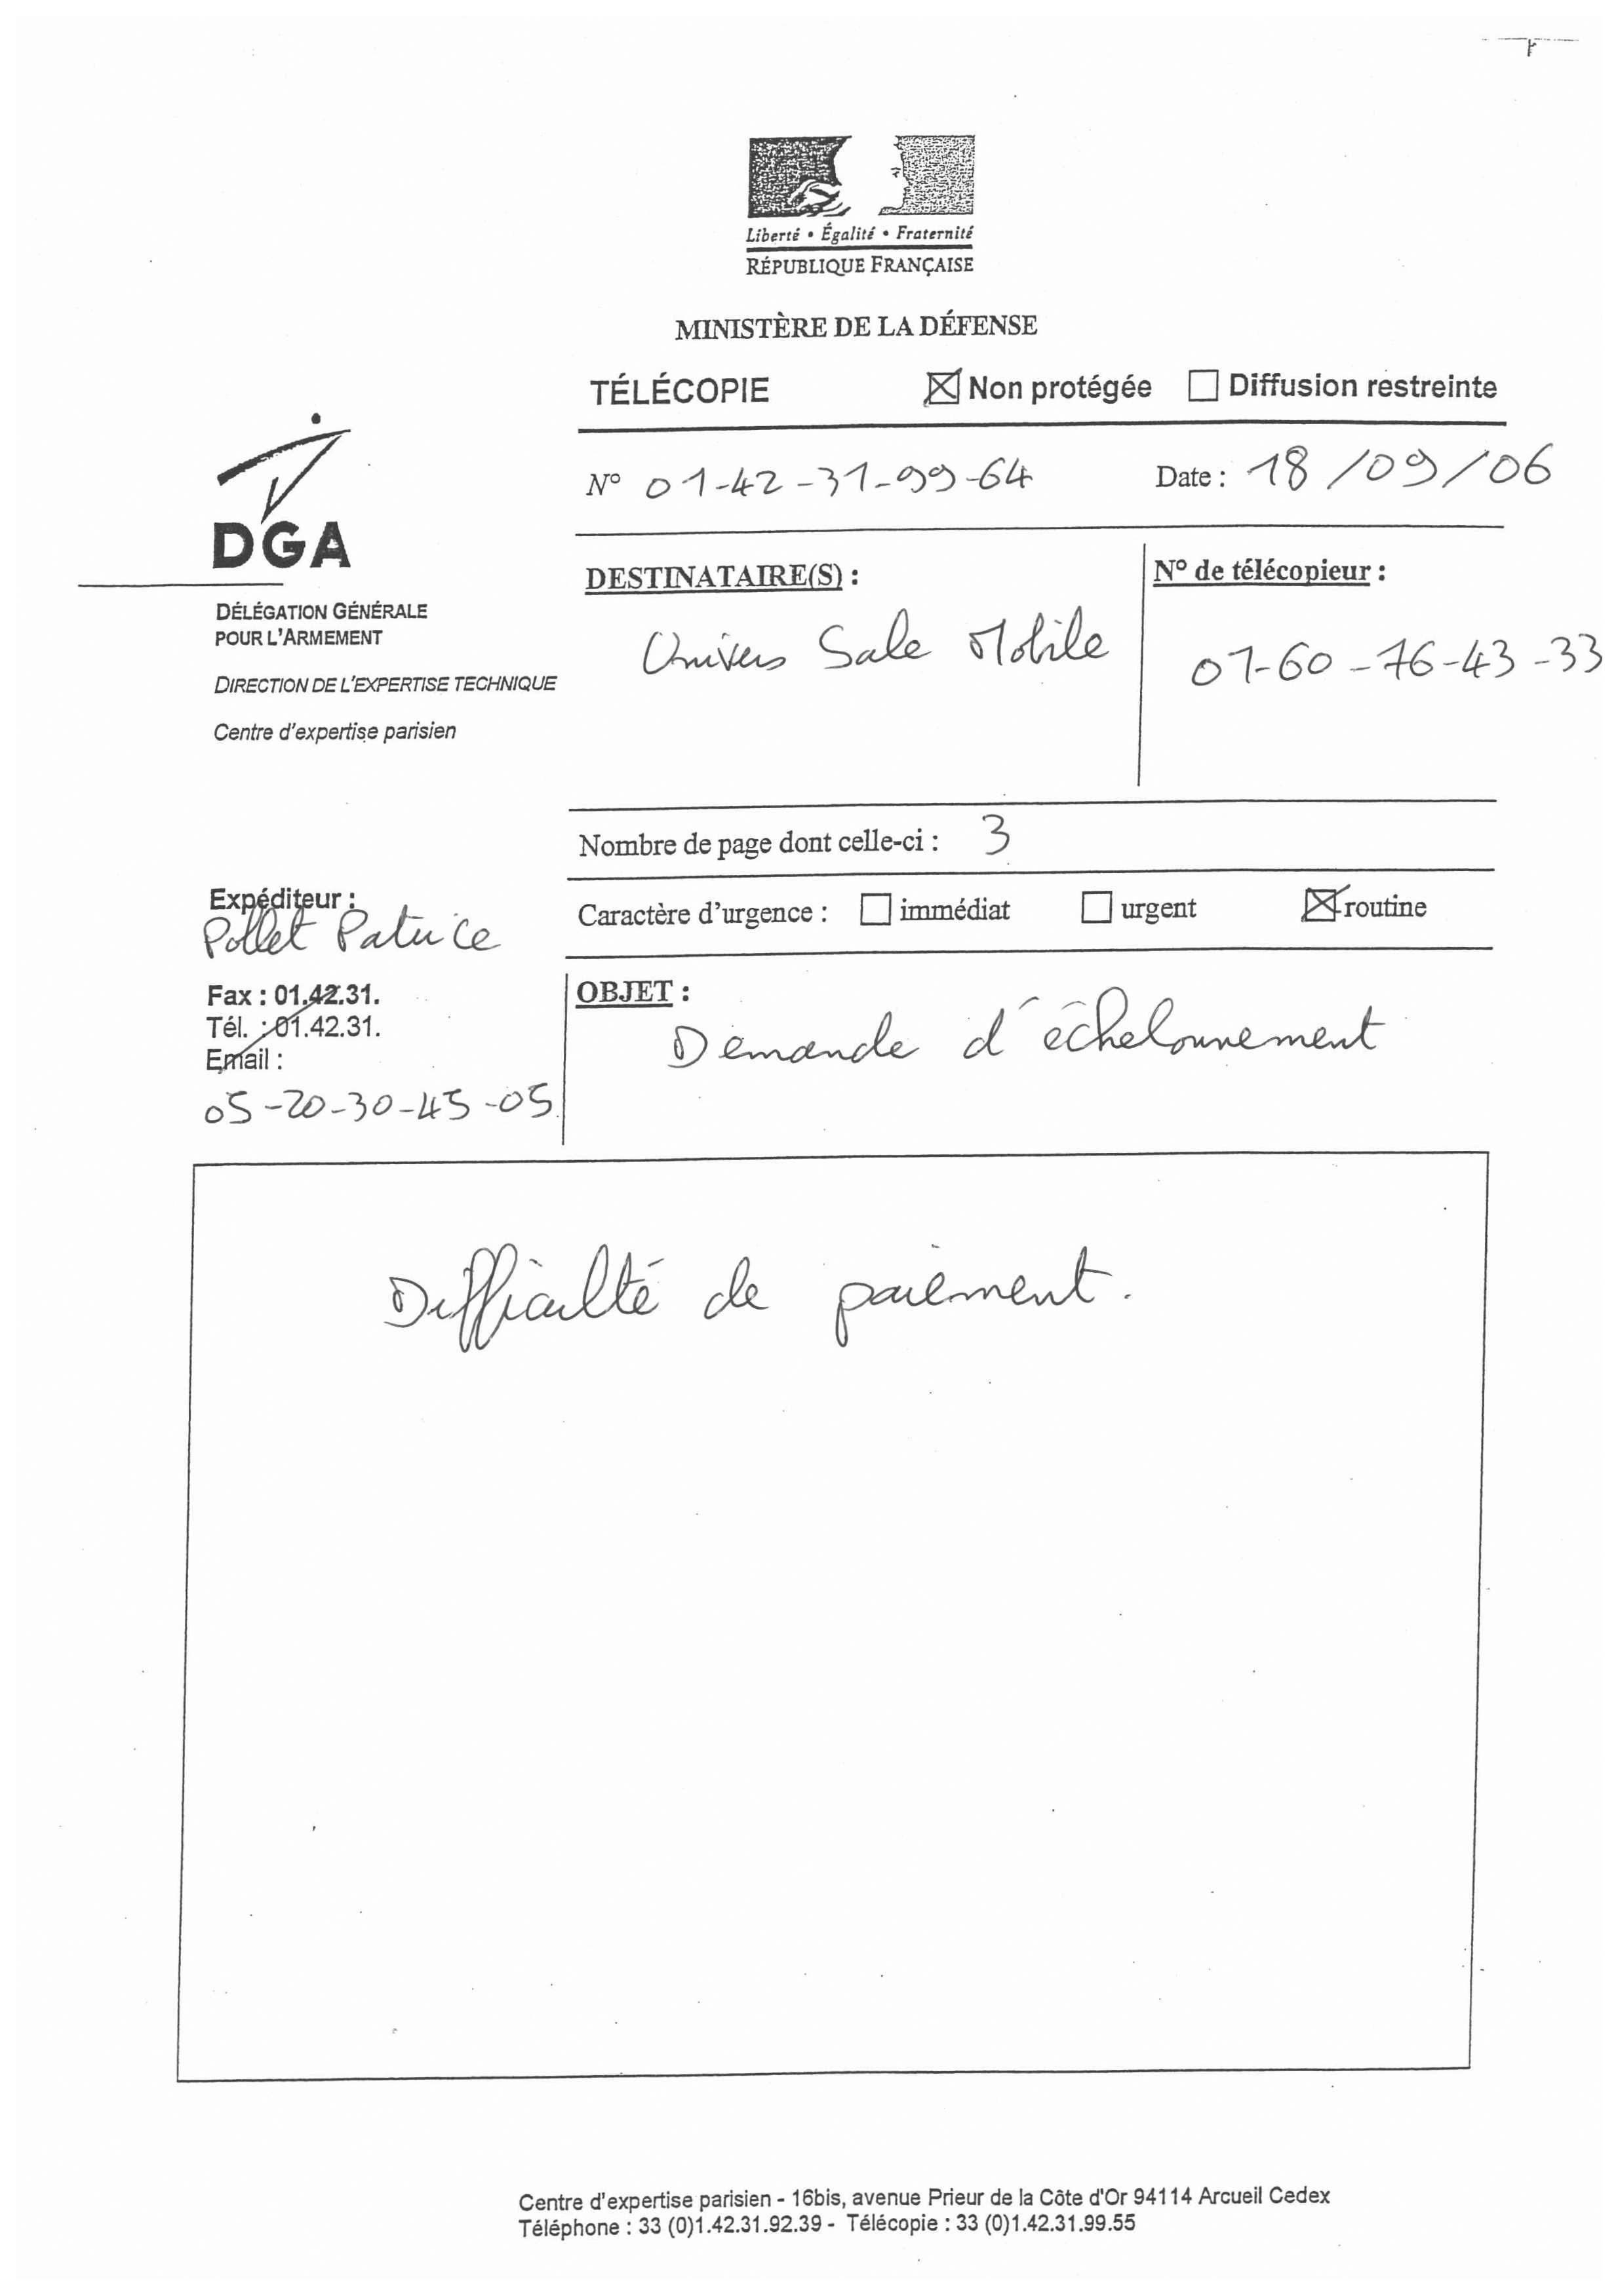 Liberté • Égalité • Fraternité
RÉPUBLIQUE FRANÇAISE
MINISTÈRE DE LA DÉFENSE
TÉLÉCOPIE ☒ Non protégée ☐ Diffusion restreinte
N° 01-42-31-99-64 Date : 18/09/06
DGA
DÉLÉGATION GÉNÉRALE
POUR L'ARMEMENT
DIRECTION DE L'EXPERTISE TECHNIQUE
Centre d'expertise parisien
DESTINATAIRE(S) :
Univers Sale Mobile
N° de télécopieur :
01-60-76-43-33
Nombre de page dont celle-ci : 3
Caractère d'urgence : ☐ immédiat ☐ urgent ☒ routine
Expéditeur :
Pollet Patrice
Fax : 01.42.31.
Tél. : 01.42.31.
Email :
05-20-30-45-05
OBJET :
Demande d'échelonnement
Difficulté de paiement.
Centre d'expertise parisien - 16bis, avenue Prieur de la Côte d'Or 94114 Arcueil Cedex
Téléphone : 33 (0)1.42.31.92.39 - Télécopie : 33 (0)1.42.31.99.55